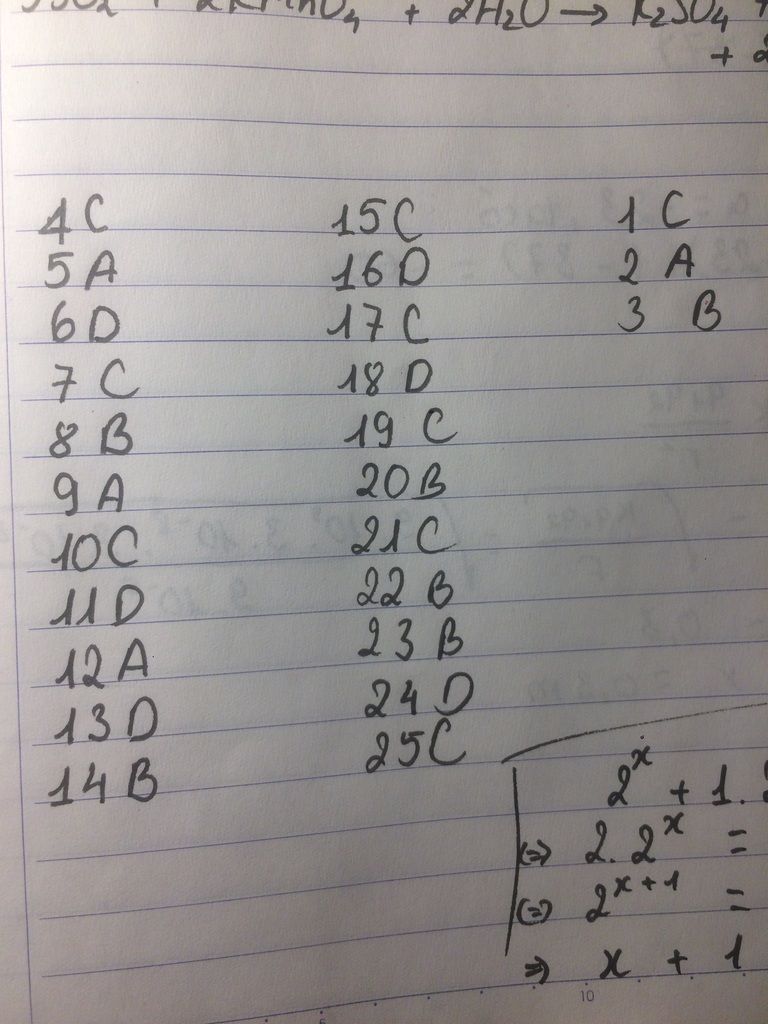 + 2KMnO4 + 2H2O → K2SO4 +
+ 2
4 C
5 A
6 D
7 C
8 B
9 A
10 C
11 D
12 A
13 D
14 B
15 C
16 D
17 C
18 D
19 C
20 B
21 C
22 B
23 B
24 D
25 C
1 C
2 A
3 B
2^x + 1.
⇔ 2.2^x =
⇔ 2^x+1 =
⇒ x + 1
10